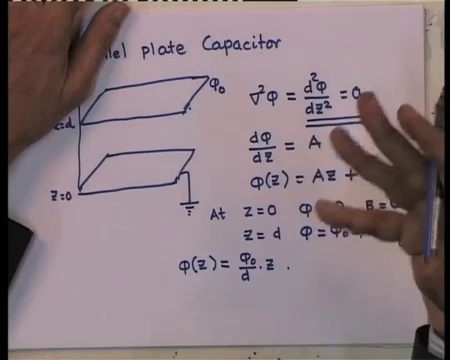 plate Capacitor
φ₀
∇²φ = d²φ/dz² = 0
dφ/dz = A
φ(z) = Az +
z=0
At z=0 φ
z=d φ=φ₀
φ(z) = φ₀/d . z .